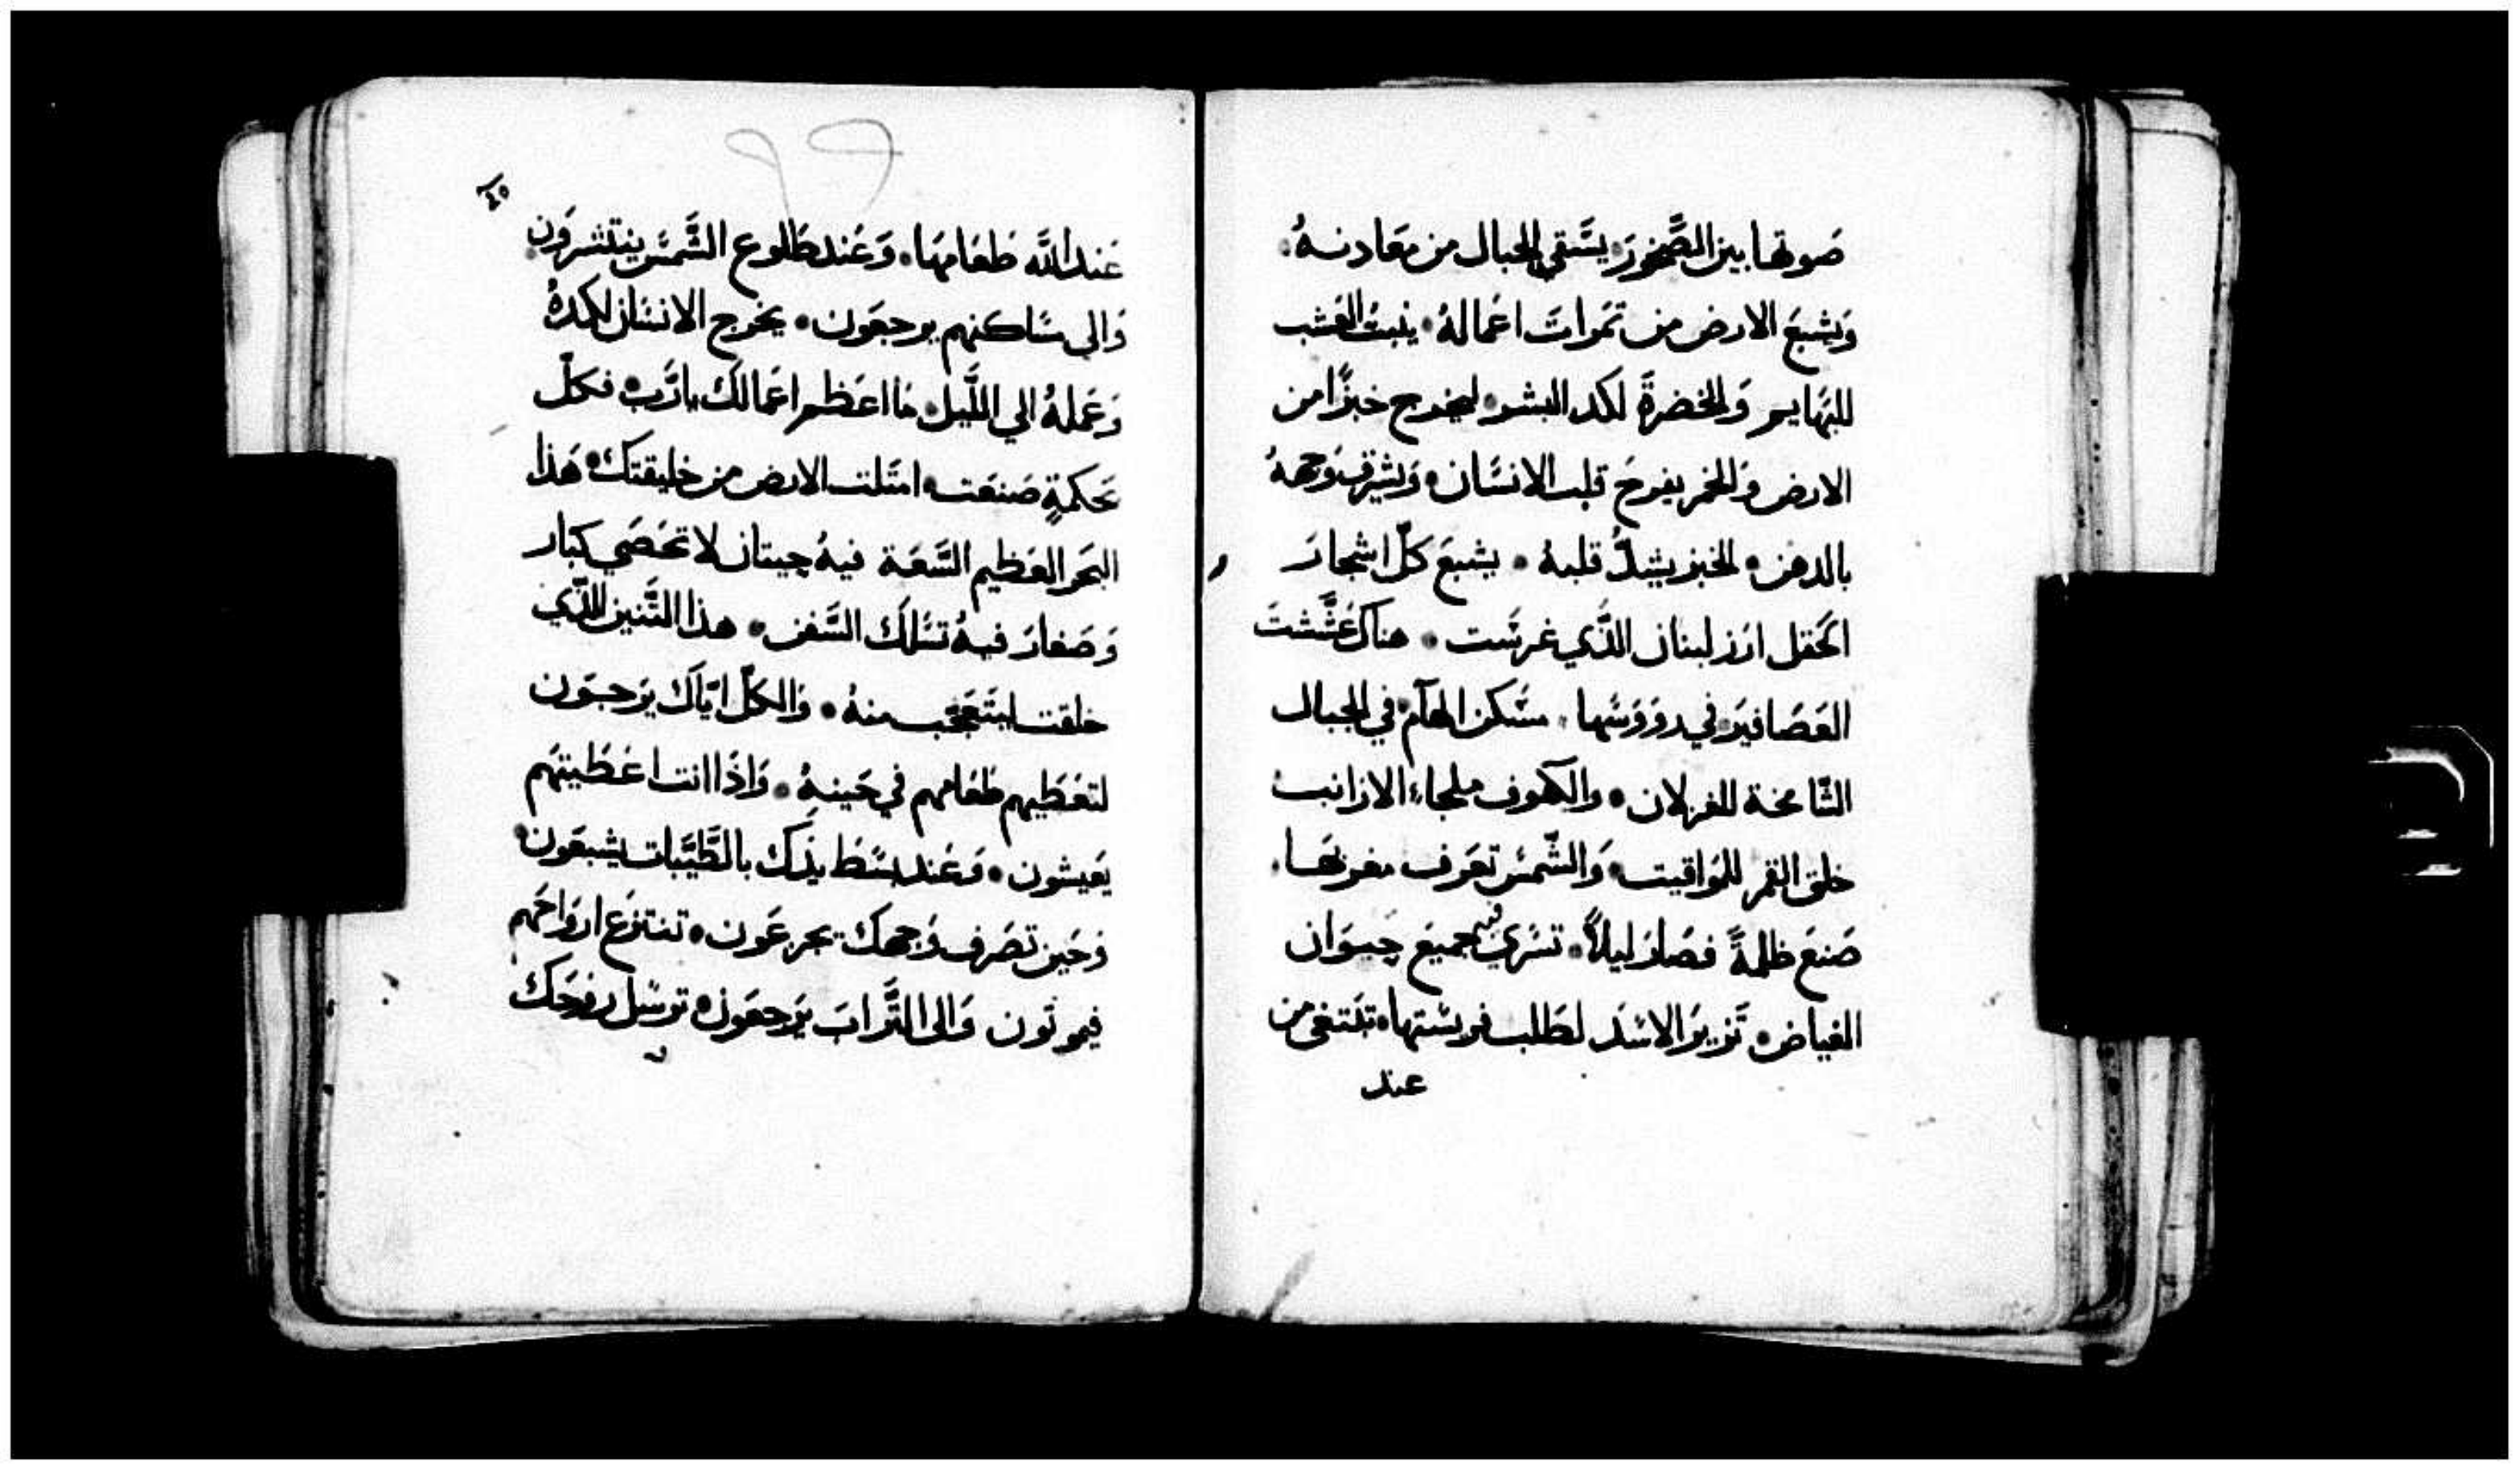 صَوتها بين الصَّخور يسَّقي الجبال من معَادنهُ.
وَيشبعَ الارض من ثمَراتَ اعَمالهُ • ينبتُ العَشب
للبهَايم وَالخضرةَ لكد البشر • ليخرج خبزًا من
الارض وَالخمر يفرحَ قلب الانسَان • وَيشرق وَجههُ
بالدهن • الخبز يشدُّ قلبهُ • يشبعَ كلّ اشجارَ
الحَقل ارَز لبنان الذَّي غرسَت • هناك عَشَّشتَ
العَصَافير في رووسَها . مسَّكن الهآم في الجبال
الشَّامخة للغزلان • والكهوف ملجاء الارانب
خلق القمر للموَاقيت • وَالشَّمسَ تعَرف مغربهَا.
صَنعَ ظلمةً فصَارَ ليلاً • تسَري فيه جميعَ حيوَان
الغياض • تَزيرَ الاسَد لطَلب فريسَتها • تبَتغي من
عند
٤٥
عَند اللَّه طعَامهَا • وَعَند طَلوع الشَّمسَ ينتشرَون.
وَالى مسَاكنهم يرجعَون • يخرج الانسَان لكدهُ
وَعَملهُ الي اللَّيل • مَا اعظم اعَمالكَ يارَّب • فكلّ
بَحكمةٍ صَنعَت • امتَلت الارض من خليقتك • هَذا
البحَر العَظيم السَّعَة فيهُ حيتان لا تحَصَي كبَار
وَصَغارَ فيهُ تسَلكَ السَّفن • هذا التَّنين الذَّي
خلقت ليتَعجَّب منهُ • وَالكلّ ايَّاكَ يرَجوَن
لتعَطيهم طعَامهم في حَينهُ • وَاذَا انت اعَطيتهَم
يَعيشون • وَعَند بسَطَ يدَك بالطَّيَّبات يشبعَون •
وَحَين تصَرف وَجهك يجزعَون • تنتزعَ اروَاحَهم
فيموتَون وَالى التَّرابَ يرَجعَون • ترسَل روَحَك